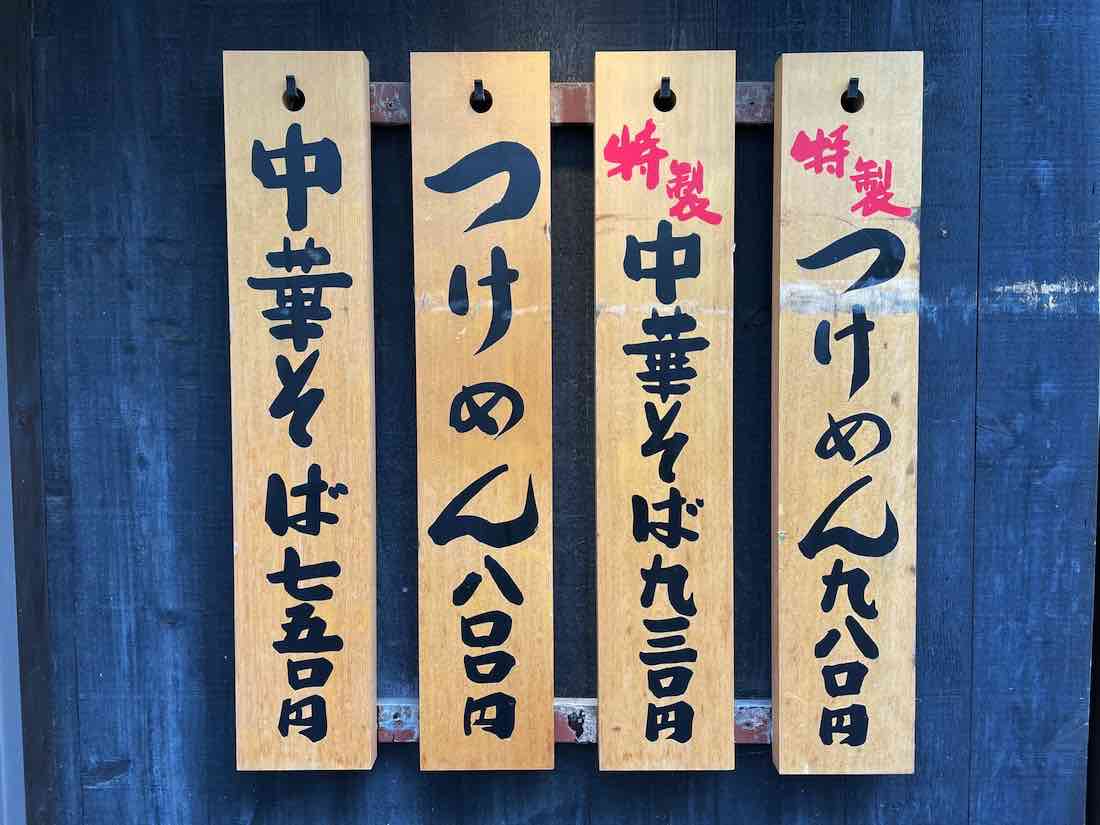 特製つけめん九八〇円
特製中華そば九三〇円
つけめん八〇〇円
中華そば七五〇円